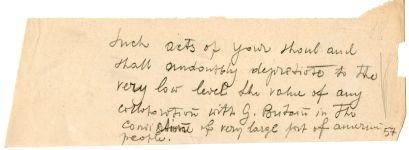 Such acts of your should and
shall undoubtly depreciate to the
very low level the value of any
cooperation with G. Britain in the
conviction of very large part of
people.
54